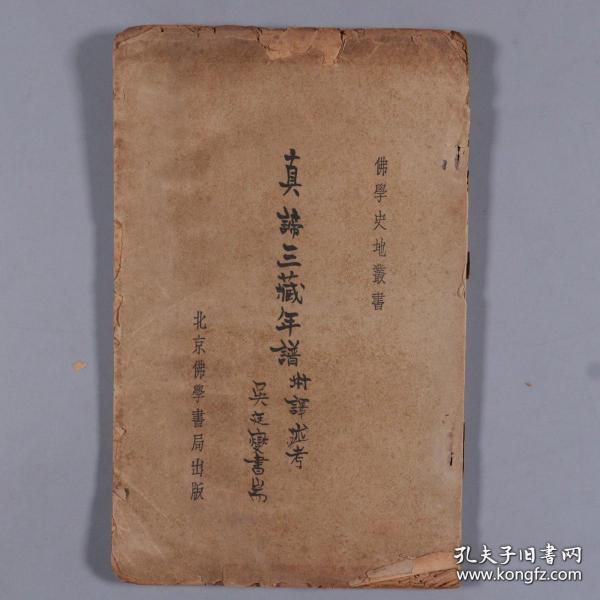 佛學史地叢書
真諦三藏年譜附譯述考
吳廷燮書耑
北京佛學書局出版
孔夫子旧书网
www.kongfz.com